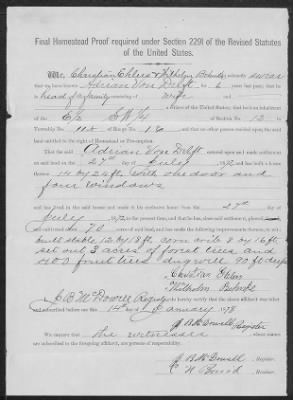 Final Homestead Proof required under Section 2291 of the Revised Statutes
of the United States.
We, Christian Ehlers & Wilhelm Behnke solemnly swear
that we have known Adrian Von Delft for 6 years last past; that he
is head of a family consisting of wife
citizen of the United States; that he is an inhabitant
of the E/2 SW/4 of Section No. 12 in
Township No. 114 of Range No. 18 and that no other person resided upon the said
land entitled to the right of Homestead or Pre-emption.
That the said Adrian Von Delft entered upon and made settlement
on said land on the 27th day of July, 1872 and has built a house
thereon 14 by 24 ft with one door and
four windows
and has lived in the said house and made it his exclusive home from the 27th day of
July 1872 to the present time, and that he has, since said settlement
about 70 acres of said land, and has made the following improvements thereon, to wit:
built stable 12 by 18 ft corn crib 8 by 16 ft
set out 3 acres of forest trees and
400 fruit trees dug well 90 ft deep
Christian Ehlers
Wilhelm Behnke
I, J B McDowell Register do hereby certify that the above affidavit was
subscribed before me this 14th day of January 1878
J B McDowell Register
We certify that the witnesses
to the foregoing affidavit, are persons of respectability.
J B McDowell, Register.
, Receiver.